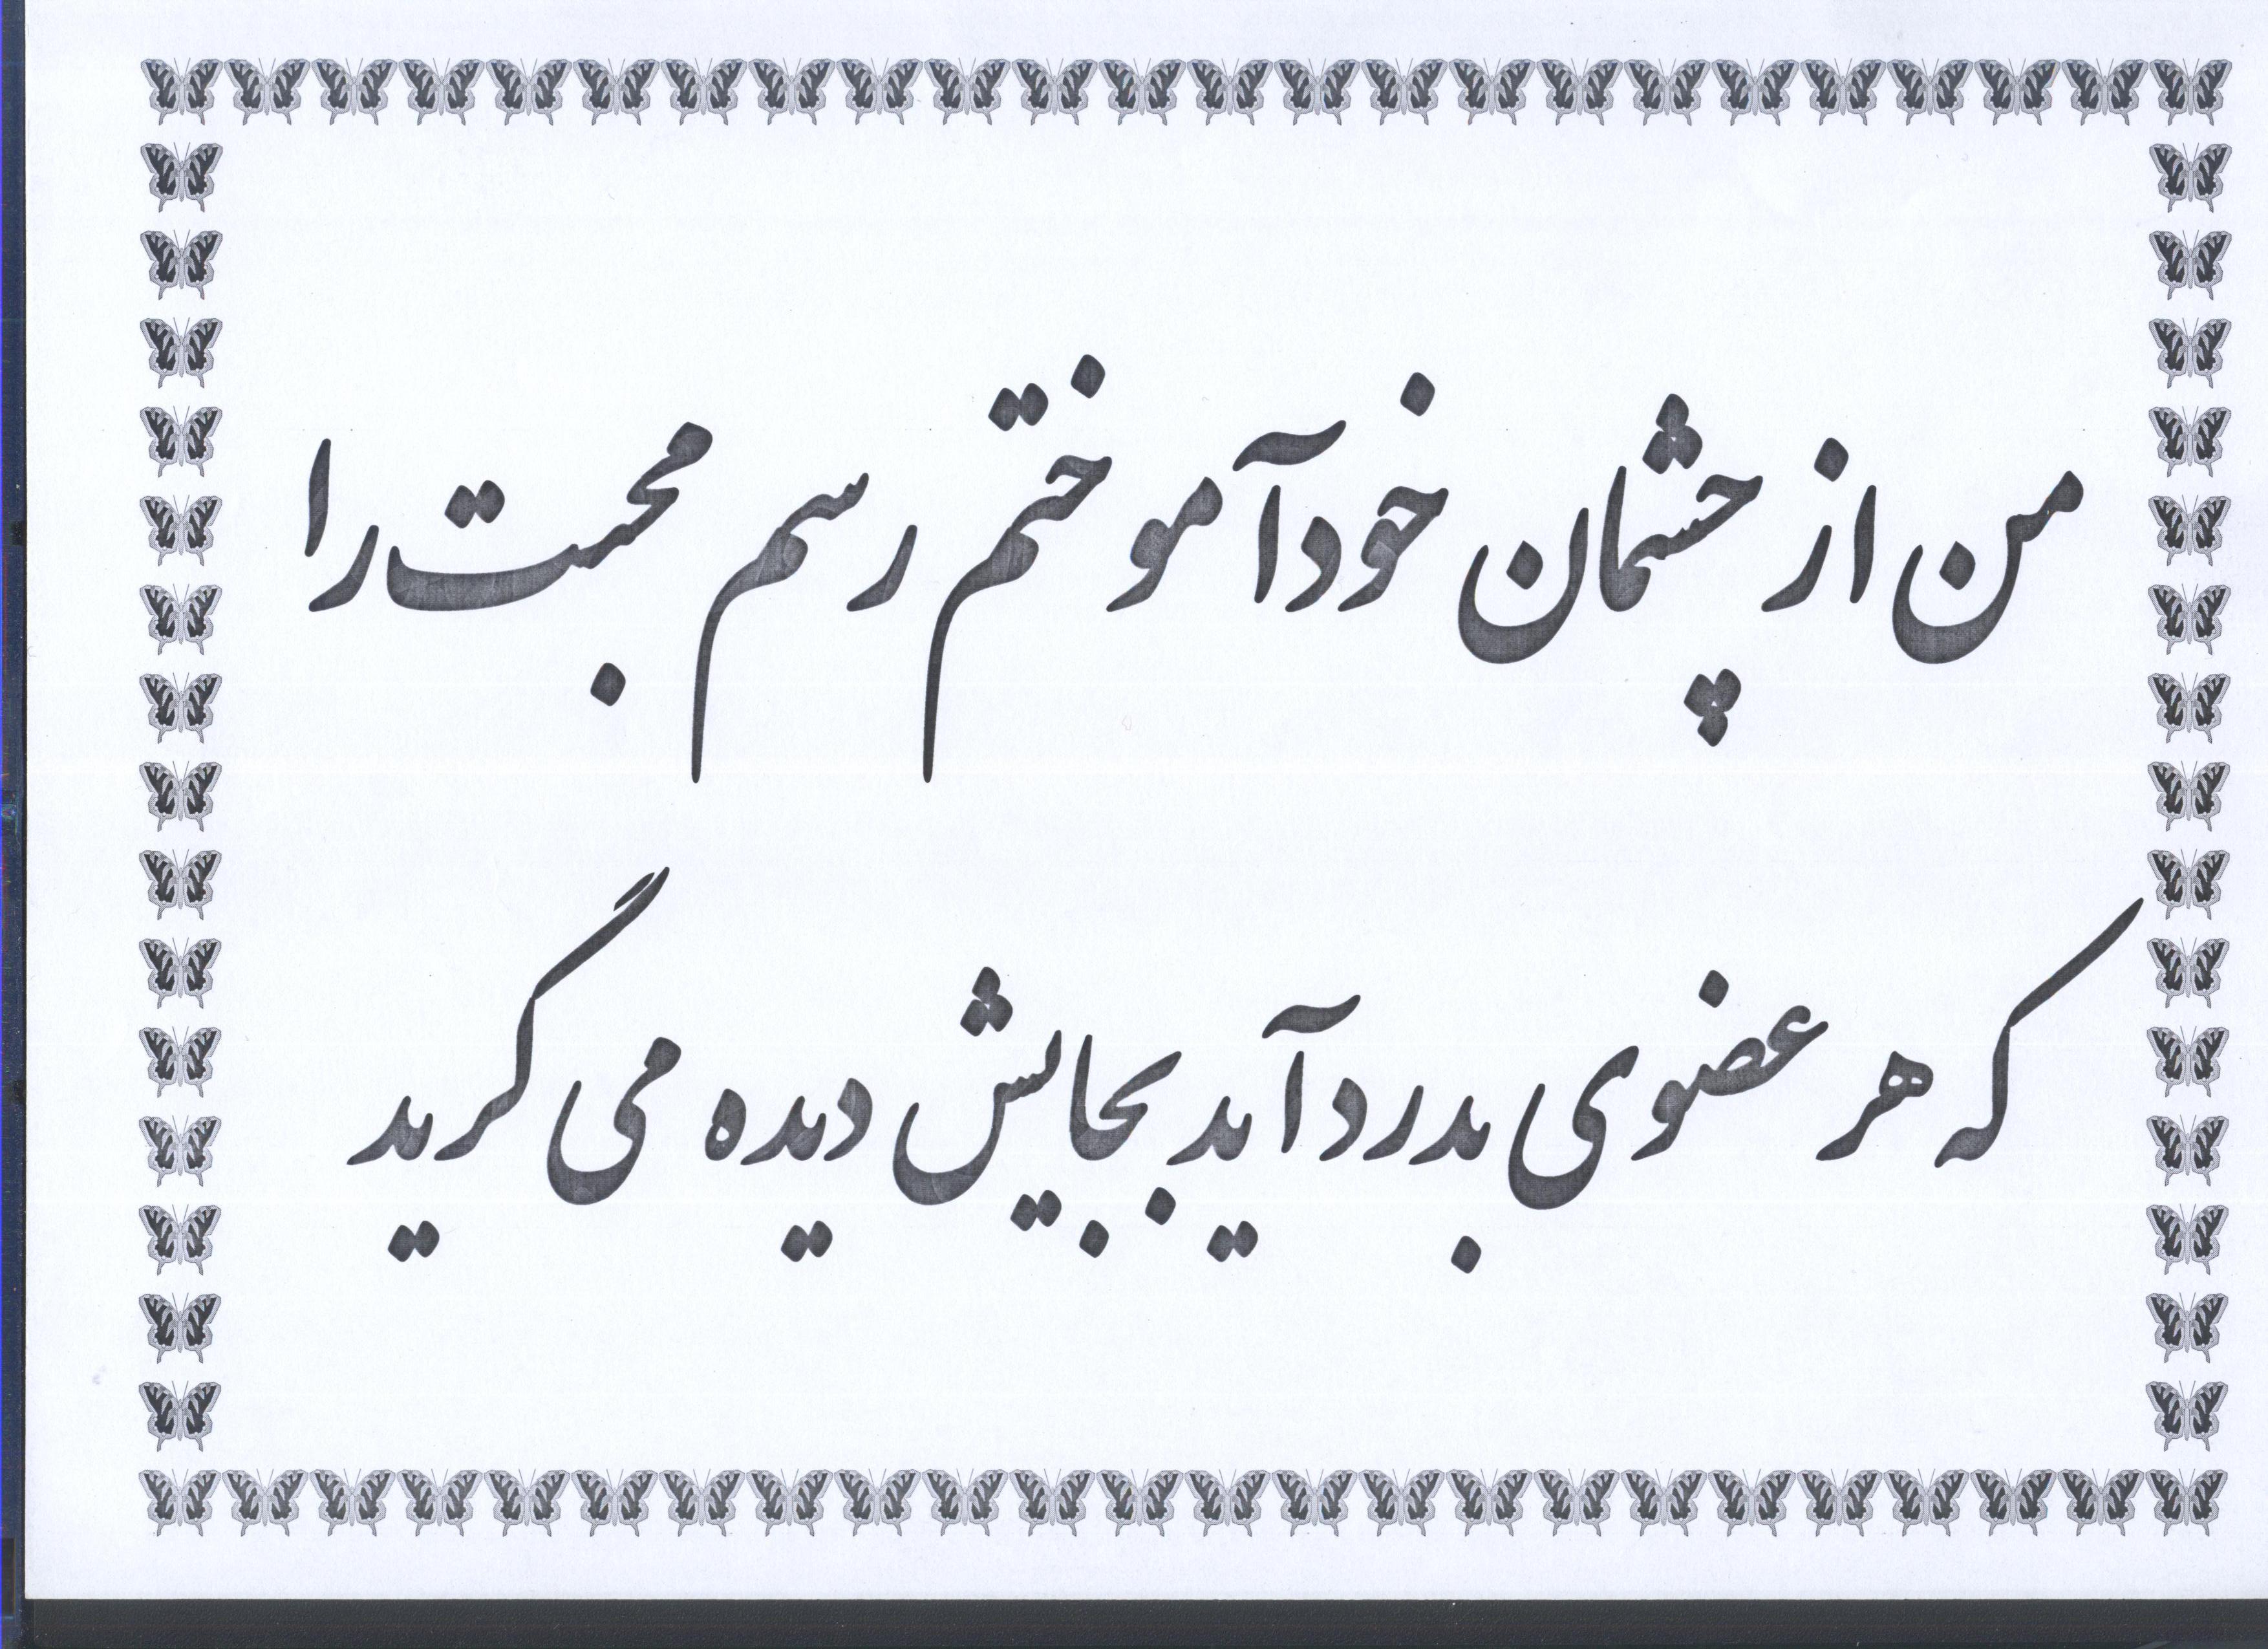 من از چشمان خود آموختم رسم محبت را
که هر عضوی بدرد آید بجایش دیده می گرید